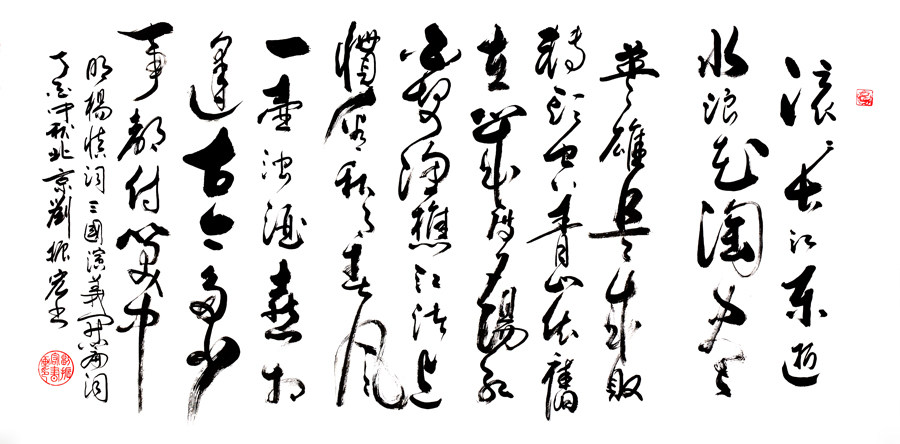 滚滚长江东逝
水浪花淘尽
英雄是非成败
转头空青山依舊
在几度夕陽红
白发渔樵江渚上
惯看秋月春风
一壶浊酒喜相
逢古今多少
事都付笑谈中
明楊慎词三國演義开篇词
丁酉中秋北京劉振宏书